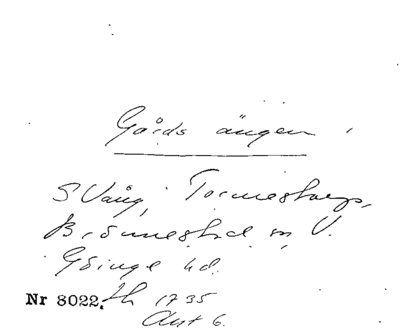 Gårds ängen
S Vång, Tormestorps,
Brönnestad sn, V.
Göinge hd.
Nr 8022. Lh 1735
Akt 6.